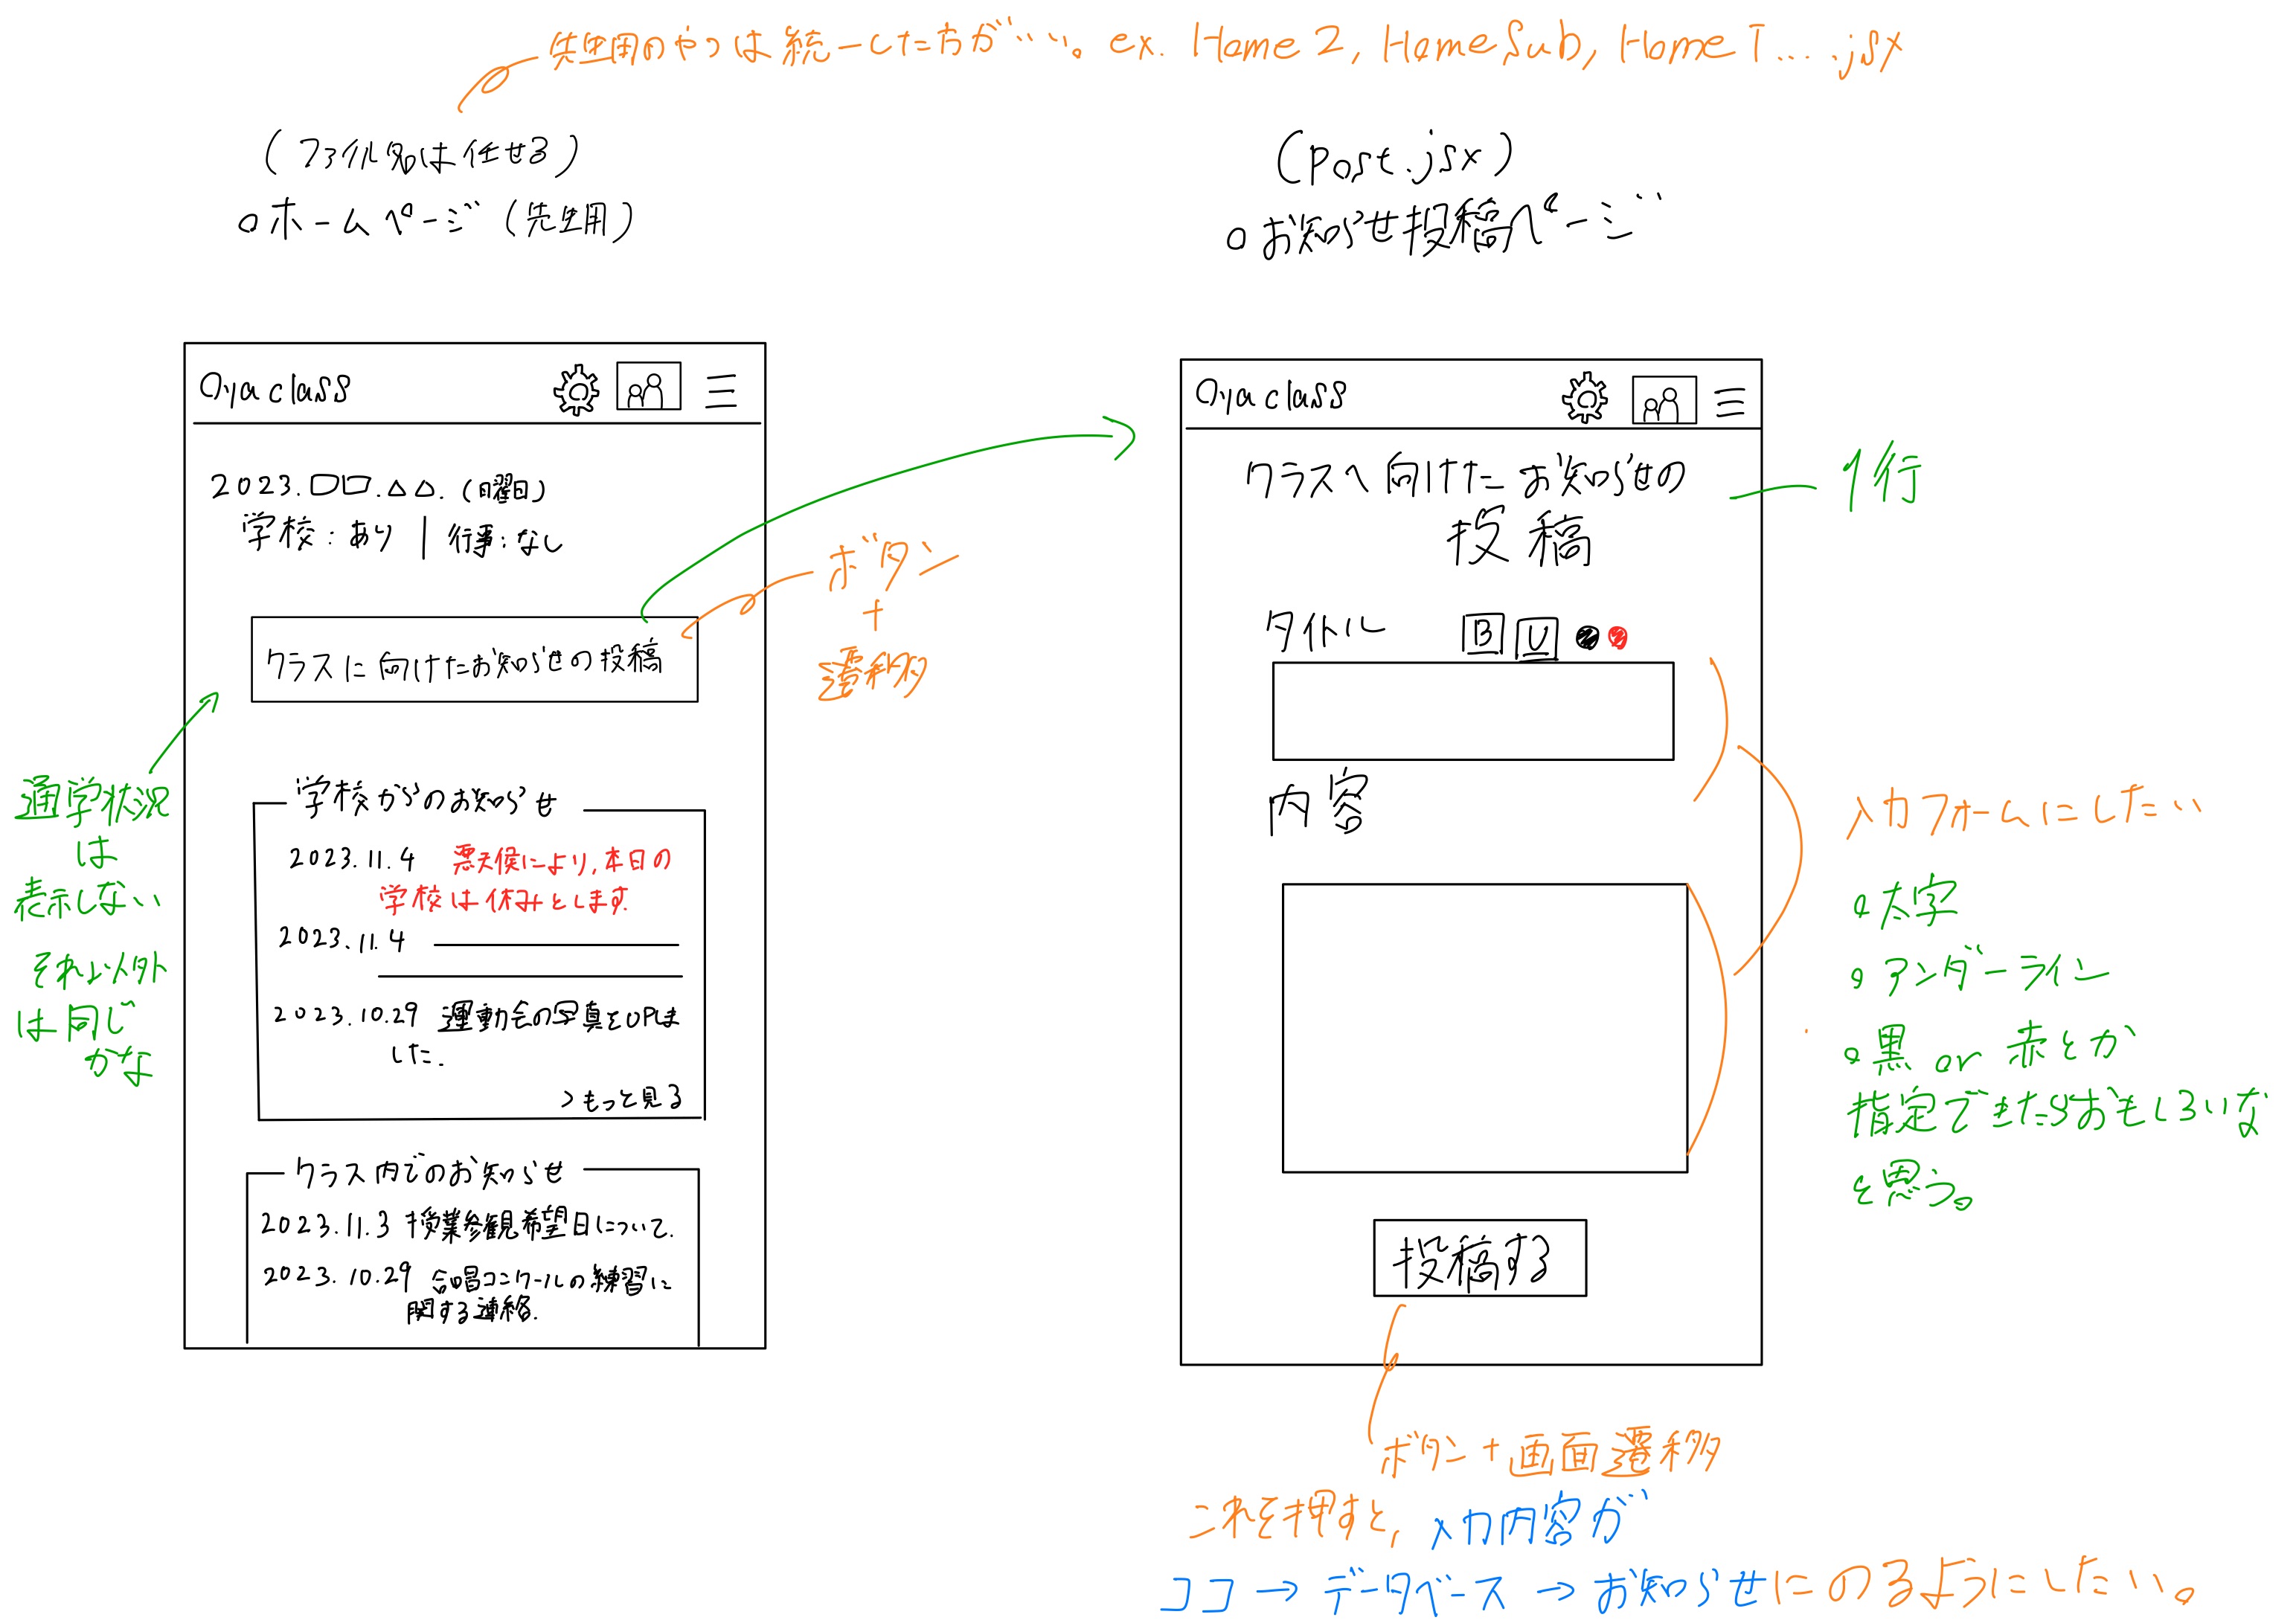 先生用のやつは統一した方が……。ex. Home2, HomeSub, HomeT.....jsx
(ファイル名は任せる)
○ホームページ(先生用)
Oyaclass
2023.□□.△△.(日曜日)
学校:あり | 行事:なし
クラスに向けたお知らせの投稿
ボタン
+
遷移
通学状況
は
表示しない
それ以外
は同じ
かな
学校からのお知らせ
2023.11.4 悪天候により,本日の
学校は休みとします.
2023.11.4
2023.10.29 運動会の写真をUPしま
した.
>もっと見る
クラス内でのお知らせ
2023.11.3 授業参観希望日について.
2023.10.29 合唱コンクールの練習に
関する連絡.
(Post.jsx)
○お知らせ投稿ページ
Oyaclass
クラスへ向けたお知らせの
投稿
1行
タイトル B U
内容
入力フォームにしたい
○太字
○アンダーライン
○黒or赤とか
指定できたらおもしろいな
と思う。
投稿する
ボタン+画面遷移
これを押すと,入力内容が
ココ→データベース→お知らせにのるようにしたい。